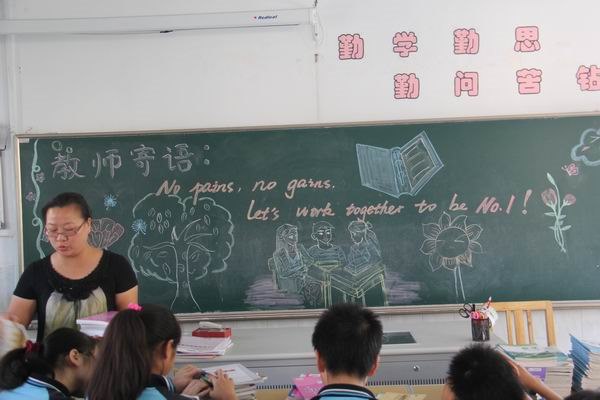 Redleaf
勤学勤思
勤问苦钻
教师寄语:
No pains, no gains.
Let's work together to be No.1!